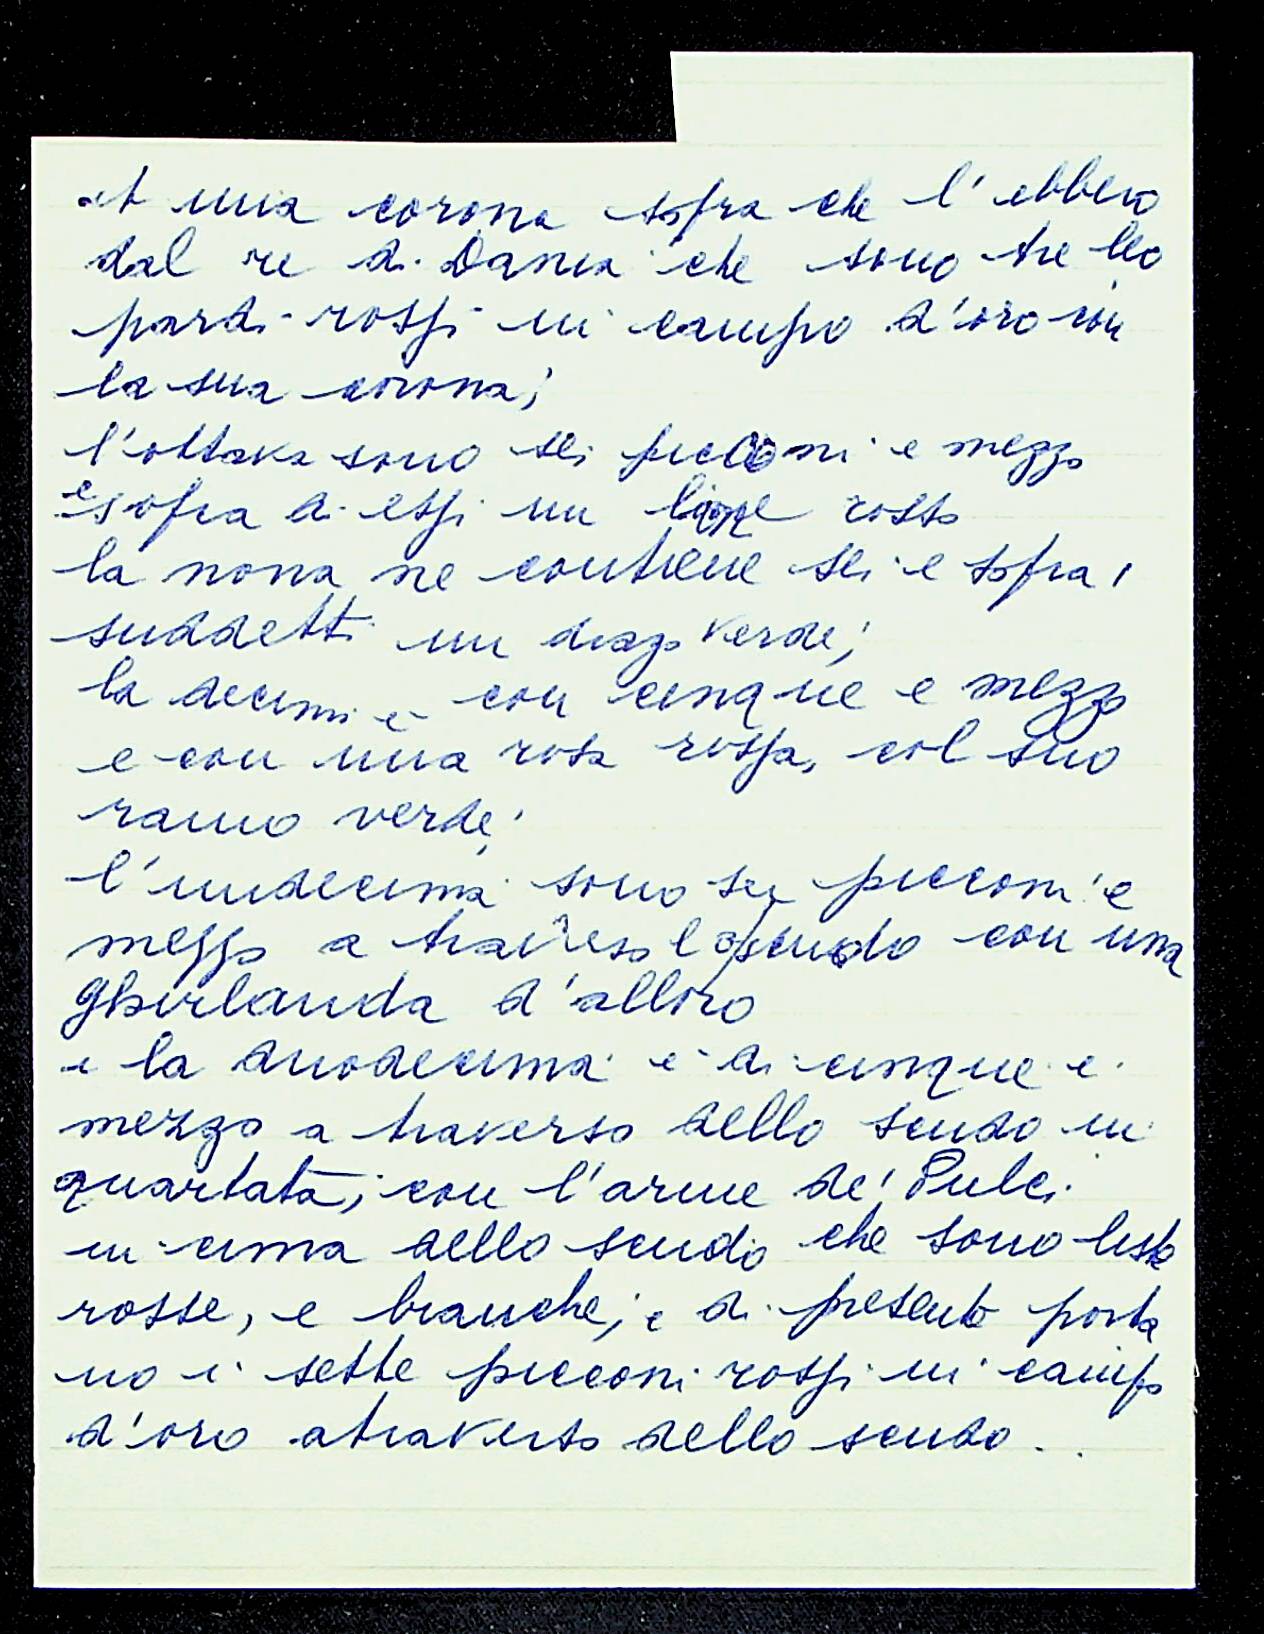 et una corona sopra che l'ebbero
dal re di Dania che sono tre leo
pardi rossi in campo d'oro con
la sua corona;
l'ottava sono sei picconi e mezzo
e sopra di essi un lione rosso
la nona ne contiene sei e sopra i
suddetti un drago verde;
la decima è con cinque e mezzo
e con una rosa rossa, col suo
ramo verde;
l'undecima sono sei picconi e
mezzo a traverso lo scudo con una
ghirlanda d'alloro
e la duodecima è di cinque e
mezzo a traverso dello scudo in
quartata; con l'arme de' Pulci
in cima dello scudo che sono liste
rosse, e bianche; e di presente porta
no i sette picconi rossi in campo
d'oro atraverso dello scudo . .